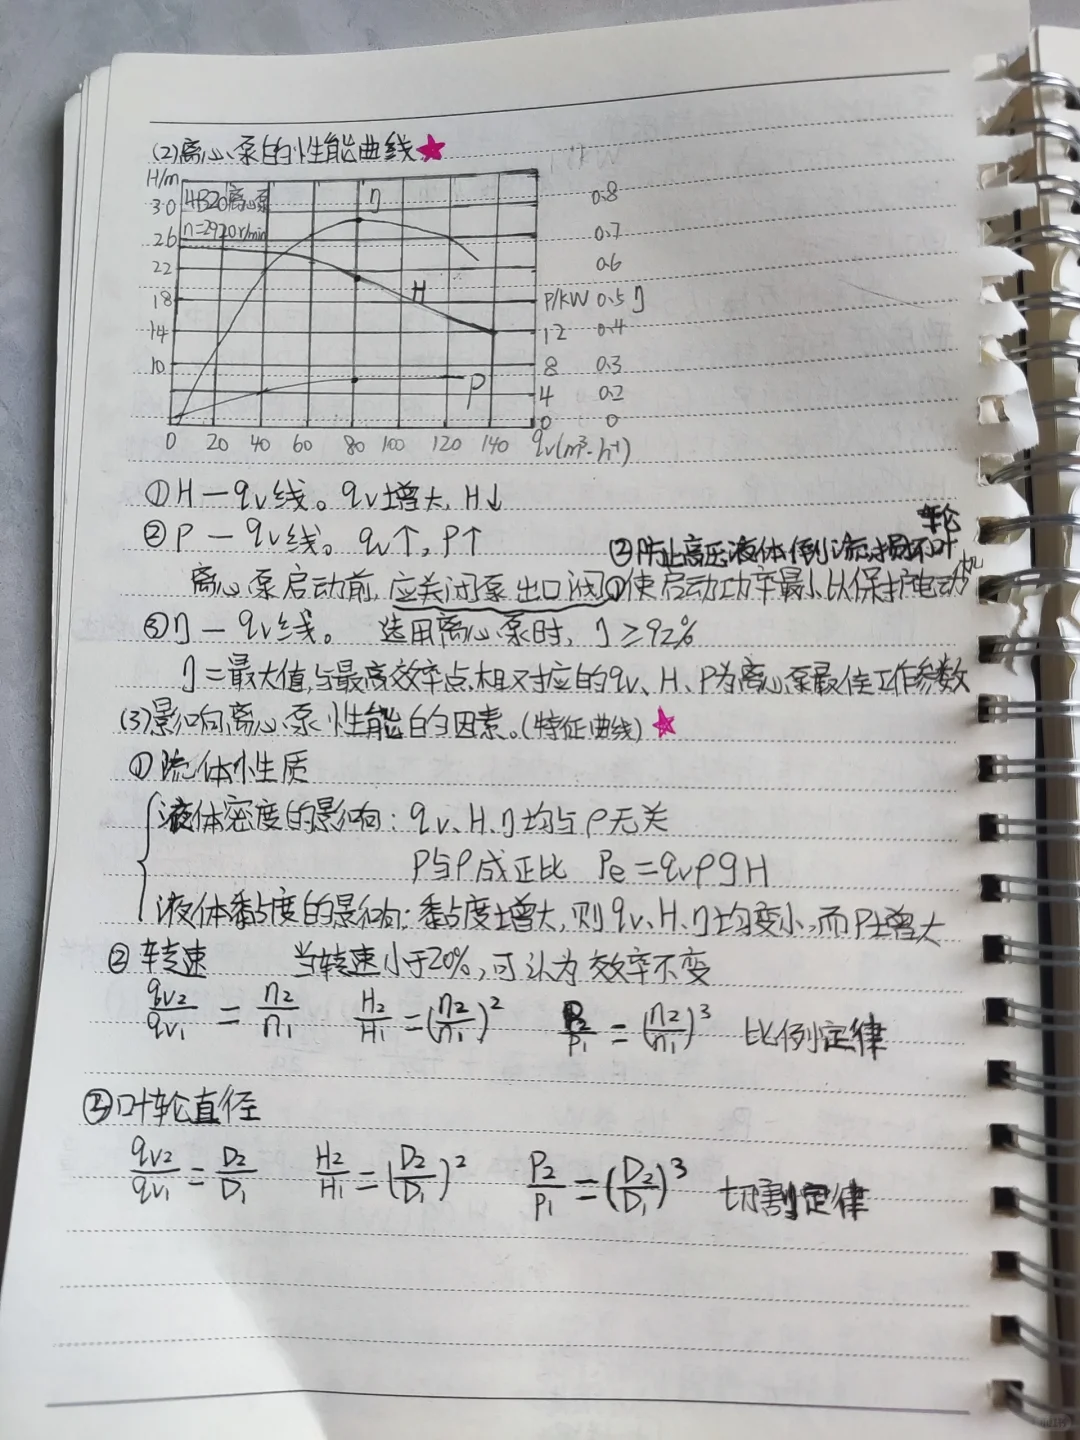 (2)离心泵的性能曲线★
H/m
HB20离心泵
n=2920r/min
η
H
P
30
26
22
18
14
10
0.8
0.7
0.6
P/KW 0.5 η
12 0.4
8 0.3
4 0.2
0 0
0 20 40 60 80 100 120 140 qv(m³·h⁻¹)
①H-qv线。qv增大,H↓
②P-qv线。qv↑,P↑
②防止高压液体倒流损坏叶轮
离心泵启动前,应关闭泵出口阀①使启动功率最小以保护电动机
③η-qv线。 选用离心泵时,η≥92%
η=最大值,与最高效率点相对应的qv、H、P为离心泵最佳工作参数
(3)影响离心泵性能的因素。(特征曲线)★
①流体性质
液体密度的影响:qv、H、η均与ρ无关
P与ρ成正比 Pe=qvρgH
液体黏度的影响:黏度增大,则qv、H、η均变小,而P增大
②转速 当转速小于20%,可认为效率不变
qv2/qv1=n2/n1 H2/H1=(n2/n1)² P2/P1=(n2/n1)³ 比例定律
③叶轮直径
qv2/qv1=D2/D1 H2/H1=(D2/D1)² P2/P1=(D2/D1)³ 切割定律